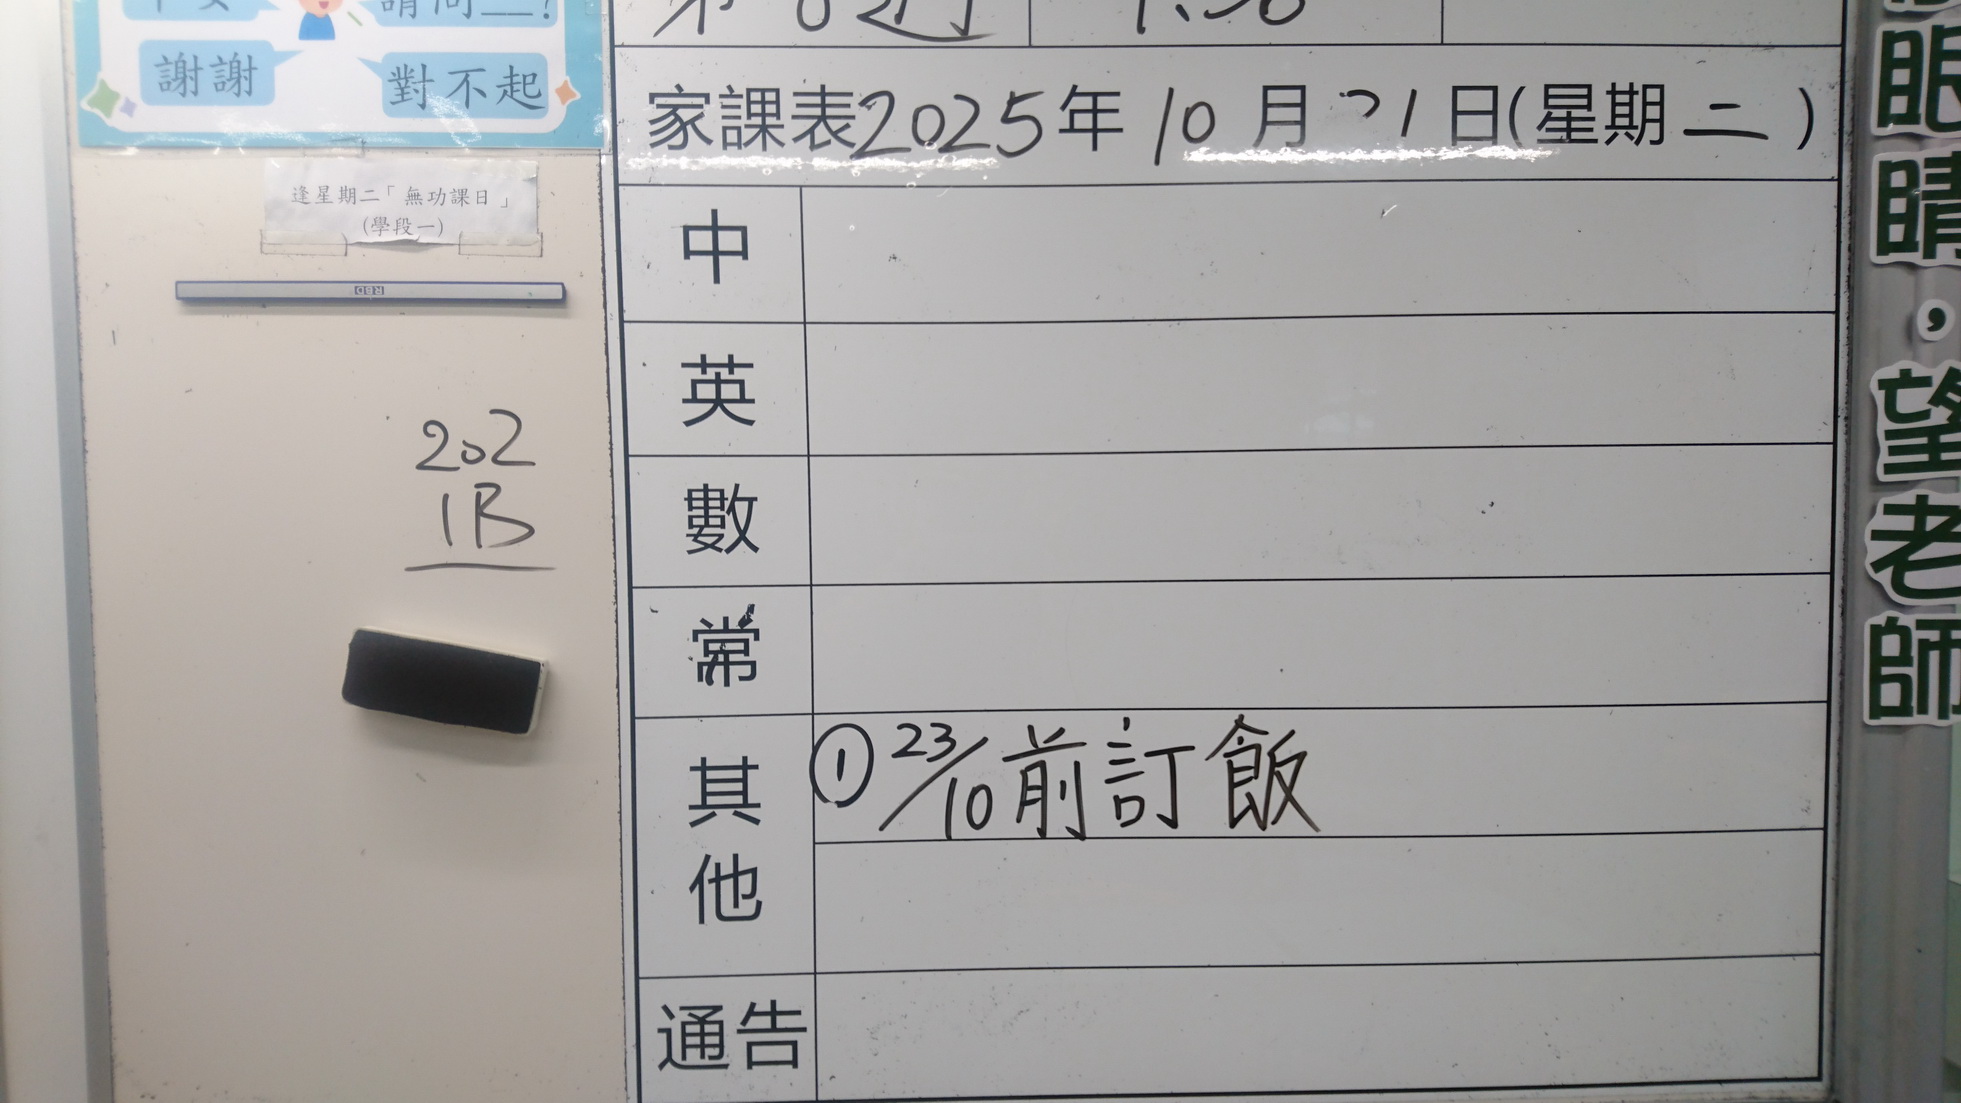 請問__?
謝謝
對不起
第8週
家課表2025年10月21日(星期二)
逢星期二「無功課日」
(學段一)
RBD
中
英
202
1B
數
常
其他
①23/10前訂飯
通告
眼睛,望老師